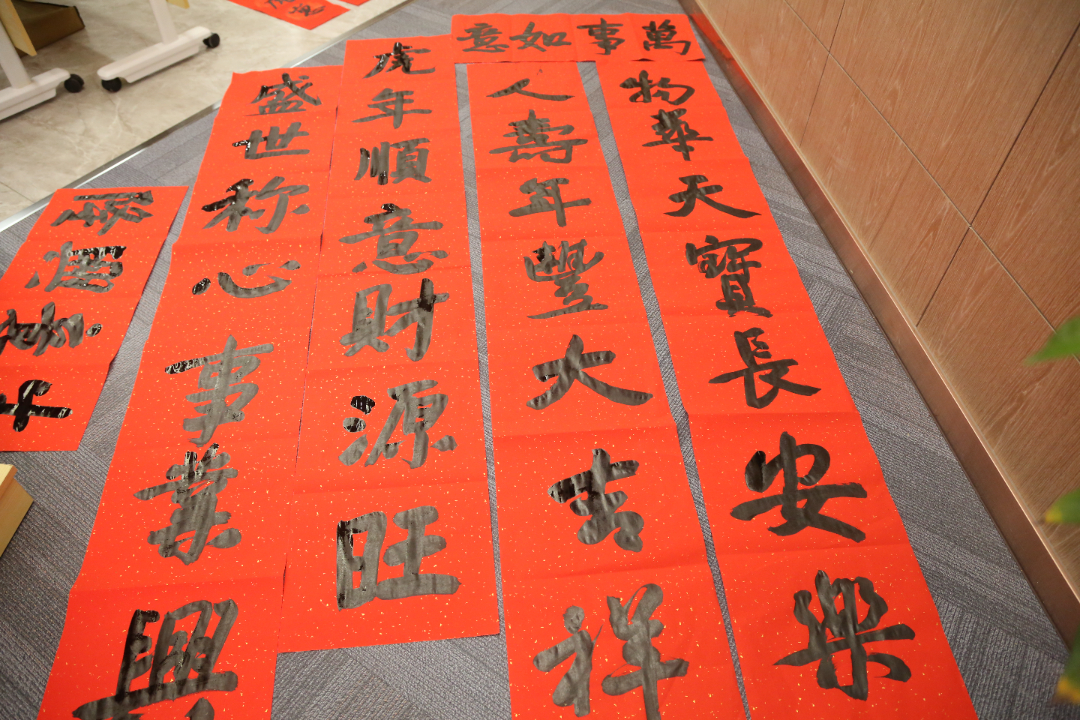 萬事如意
物華天寶長安樂
人壽年豐大吉祥
虎年順意財源旺
盛世称心事業興